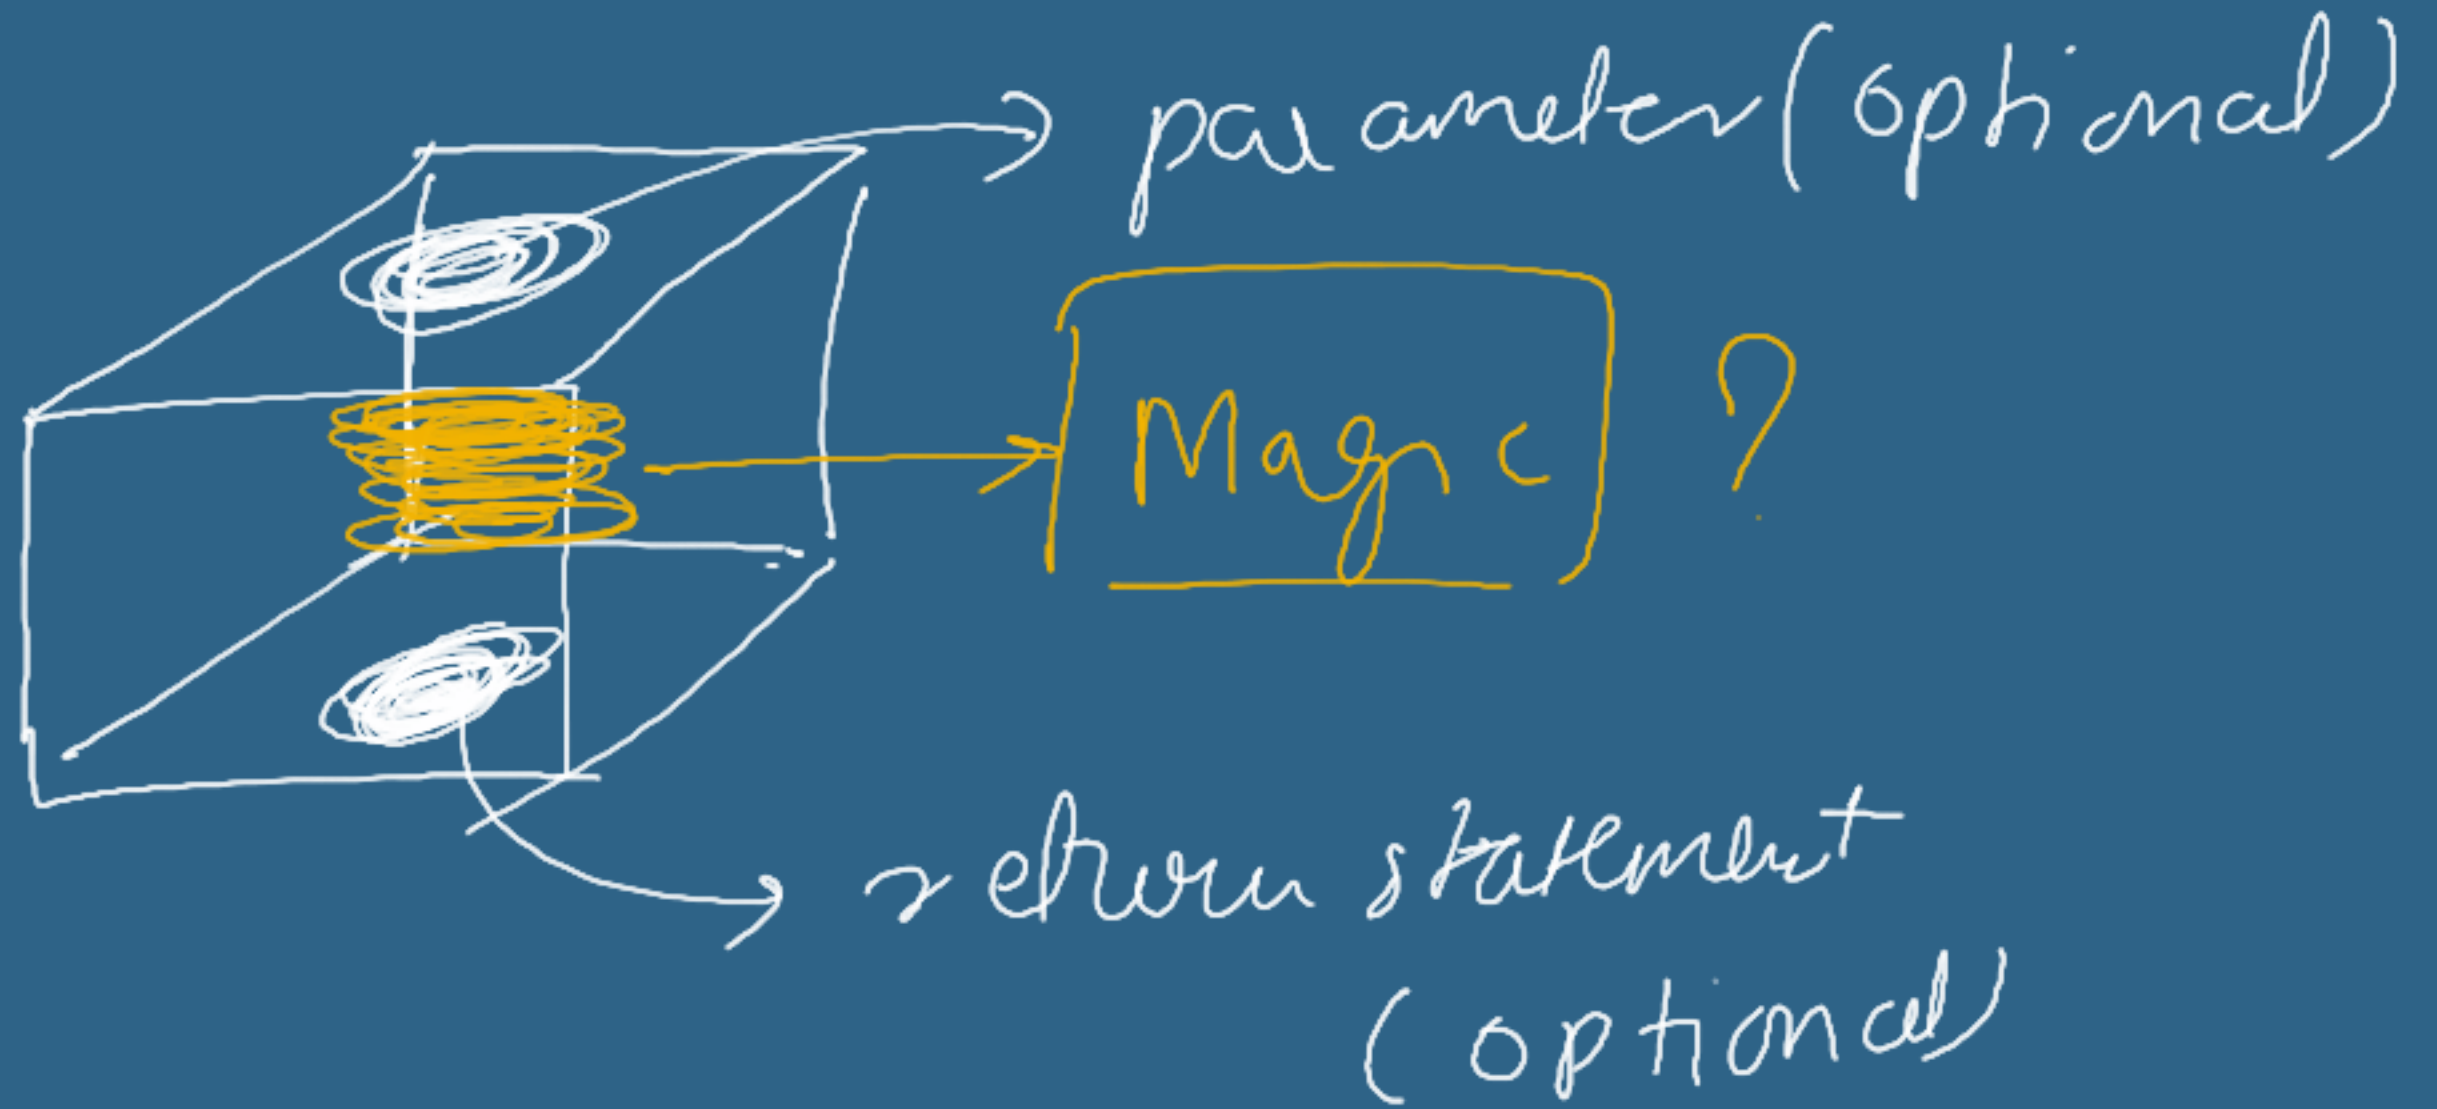 parameter (optional)
Magic ?
return statement
(optional)